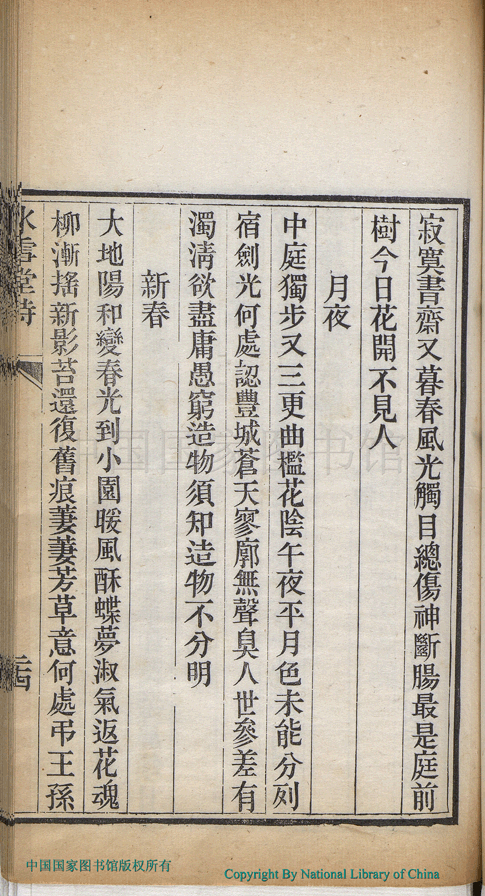 寂寞書齋又暮春風光觸目總傷神斷腸最是庭前
樹今日花開不見人
月夜
中庭獨步又三更曲檻花陰午夜平月色未能分列
宿劍光何處認豐城蒼天寥廓無聲臭人世參差有
濁淸欲盡庸愚窮造物須知造物不分明
新春
大地陽和變春光到小園暖風酥蝶夢淑氣返花魂
柳漸搖新影苔還復舊痕萋萋芳草意何處弔王孫
冰雪堂詩
二十四
中国国家图书馆
中国国家图书馆版权所有
Copyright By National Library of China